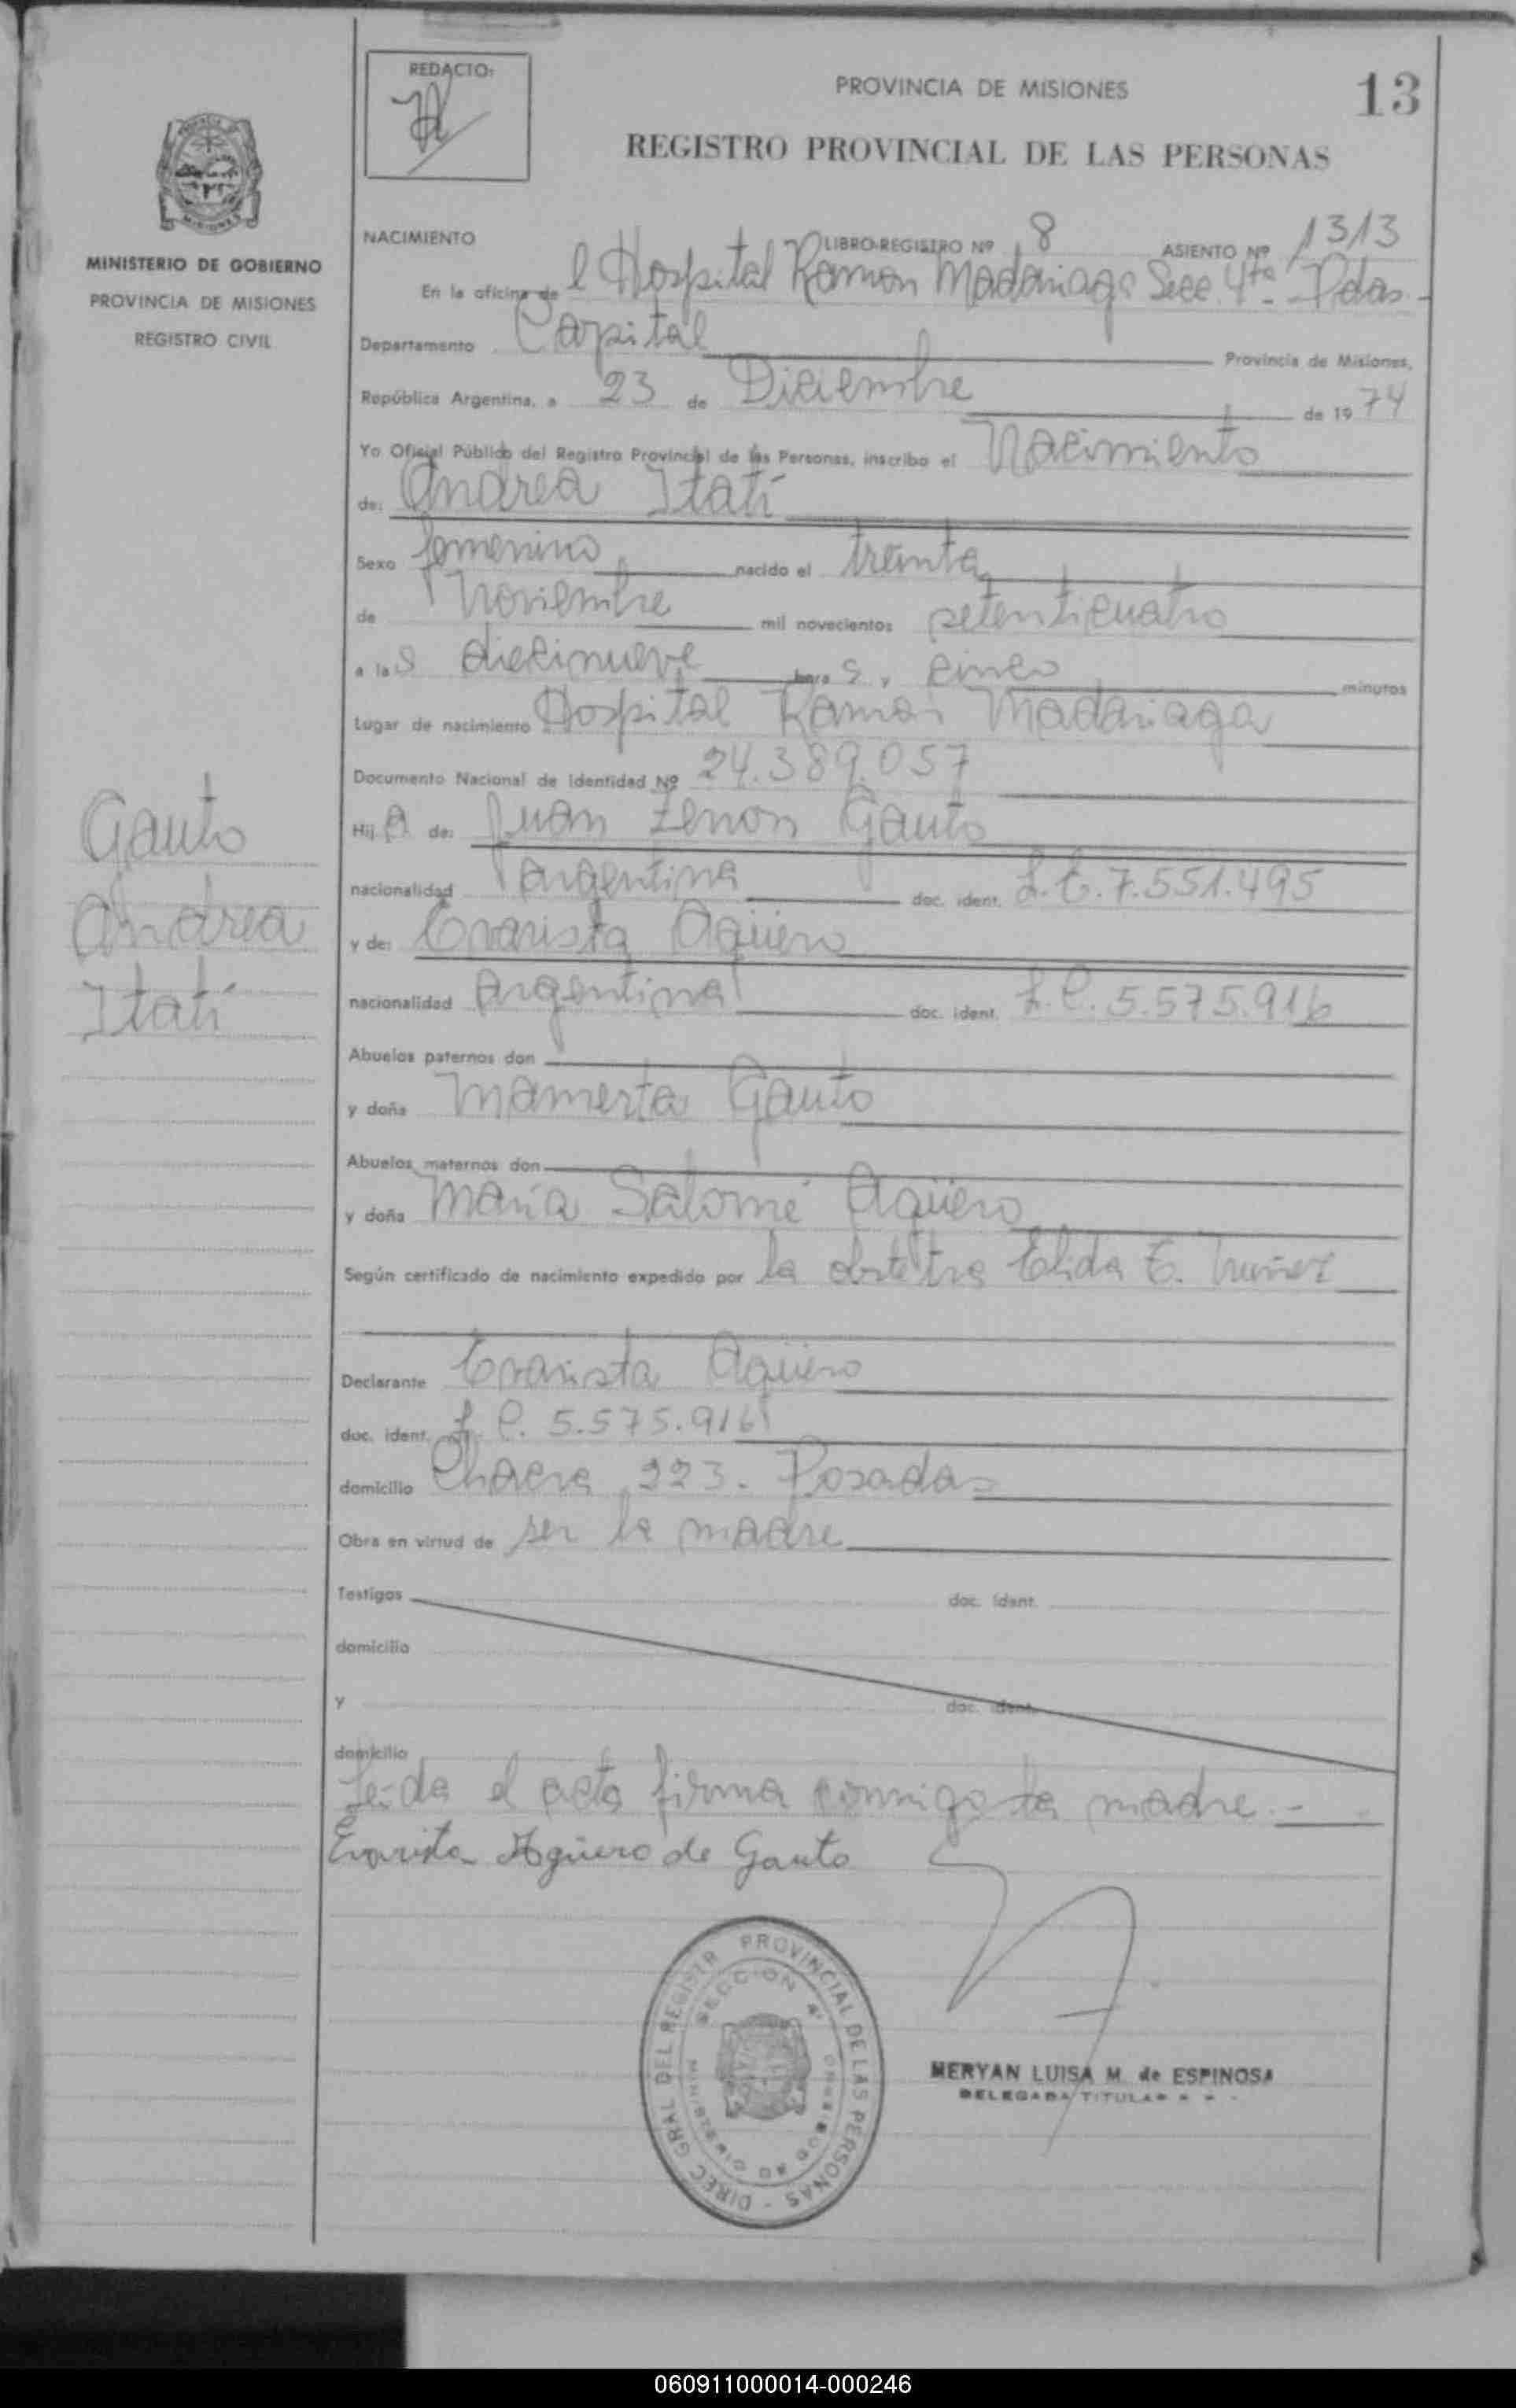 REDACTO:
PROVINCIA DE MISIONES
13
REGISTRO PROVINCIAL DE LAS PERSONAS
MISIONES
MINISTERIO DE GOBIERNO
PROVINCIA DE MISIONES
REGISTRO CIVIL
NACIMIENTO LIBRO-REGISTRO Nº 8 ASIENTO Nº 1313
En la oficina de l Hospital Ramon Madariaga Secc. 4ta - Pdas. -
Departamento Capital Provincia de Misiones,
República Argentina, a 23 de Diciembre de 1974
Yo Oficial Público del Registro Provincial de las Personas, inscribo el Nacimiento
de: Andrea Itatí
Sexo femenino nacido el treinta
de Noviembre mil novecientos setenticuatro
a las diecinueve horas y cinco minutos
Lugar de nacimiento Hospital Ramon Madariaga
Documento Nacional de Identidad Nº 24.389.057
Hija de: Juan Zenon Gauto
nacionalidad argentina doc. ident. L.E. 7.551.495
y de: Evarista Agüero
nacionalidad Argentina doc. ident. L.C. 5.575.916
Abuelos paternos don
y doña Mamerta Gauto
Abuelos maternos don
y doña María Salomé Agüero
Según certificado de nacimiento expedido por la obstetra Elida E. Nuñez
Declarante Evarista Agüero
doc. ident. L.C. 5.575.916
domicilio Chacra 223. Posadas
Obra en virtud de ser la madre
Testigos doc. ident.
domicilio
y doc. ident.
domicilio
Leida el acta firma conmigo la madre.-
Evarista Agüero de Gauto
Gauto
Andrea
Itatí
DIREC. GRAL DEL REGISTR PROVINCIAL DE LAS PERSONAS -
SECCION 4ª
MINISTERIO DE GOBIERNO
MERYAN LUISA M. de ESPINOSA
DELEGADA TITULAR
060911000014-000246